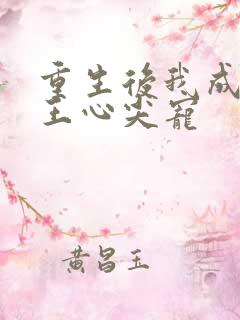 重生後我成
王心尖寵
黄昌玉